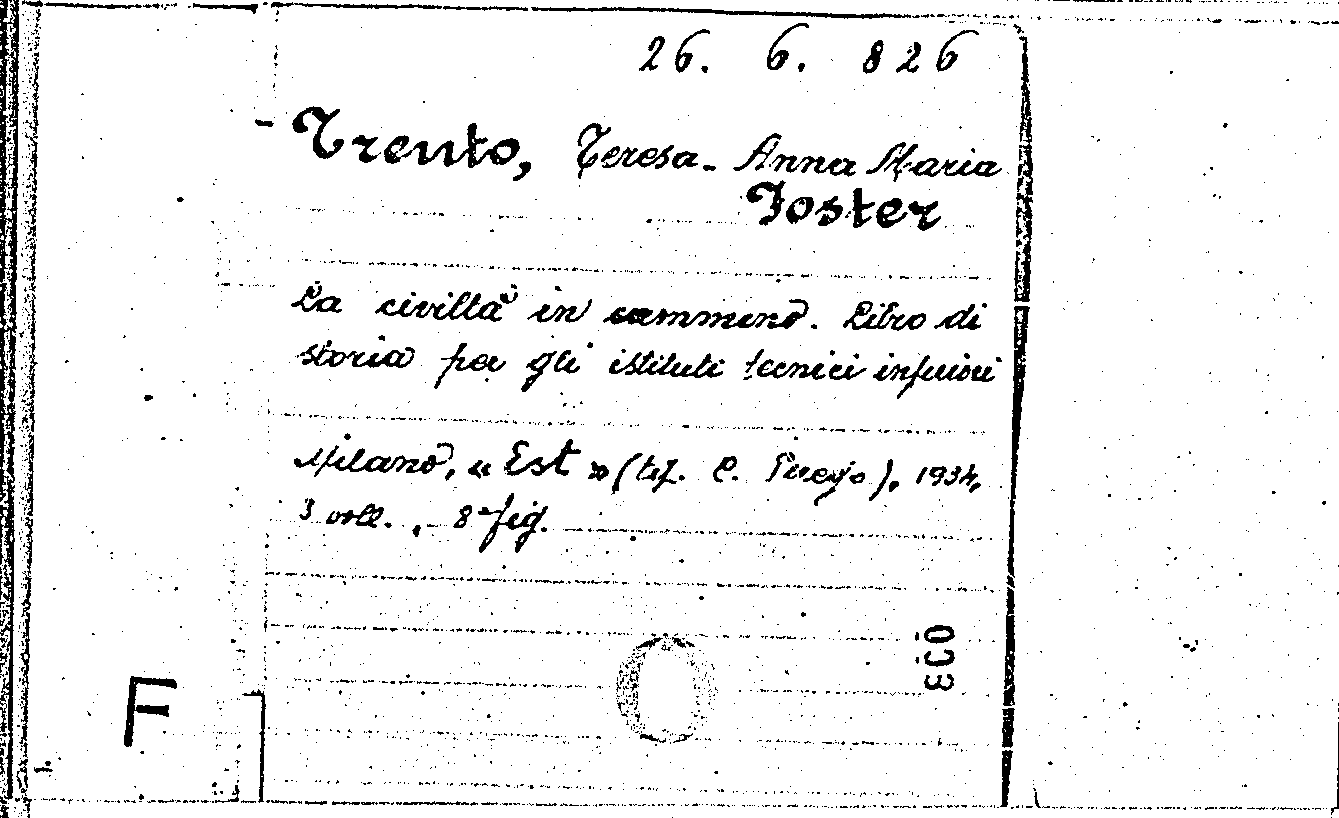 26. 6. 826
Trento, Teresa - Anna Maria
Foster
La civiltà in cammino. Libro di
storia per gli istituti tecnici inferiori
Milano, « Est » (tip. C. ), 1934,
3 voll., 8° fig.
030
F